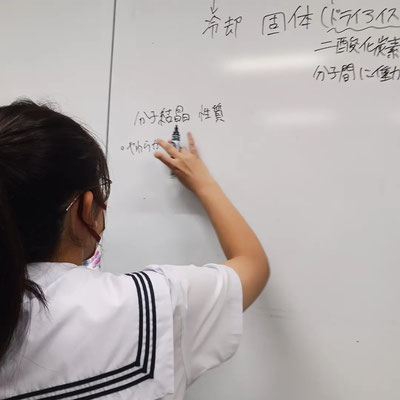 冷却 固体(ドライアイス
二酸化炭素
分子間に働
分子結晶 性質
・やわらか